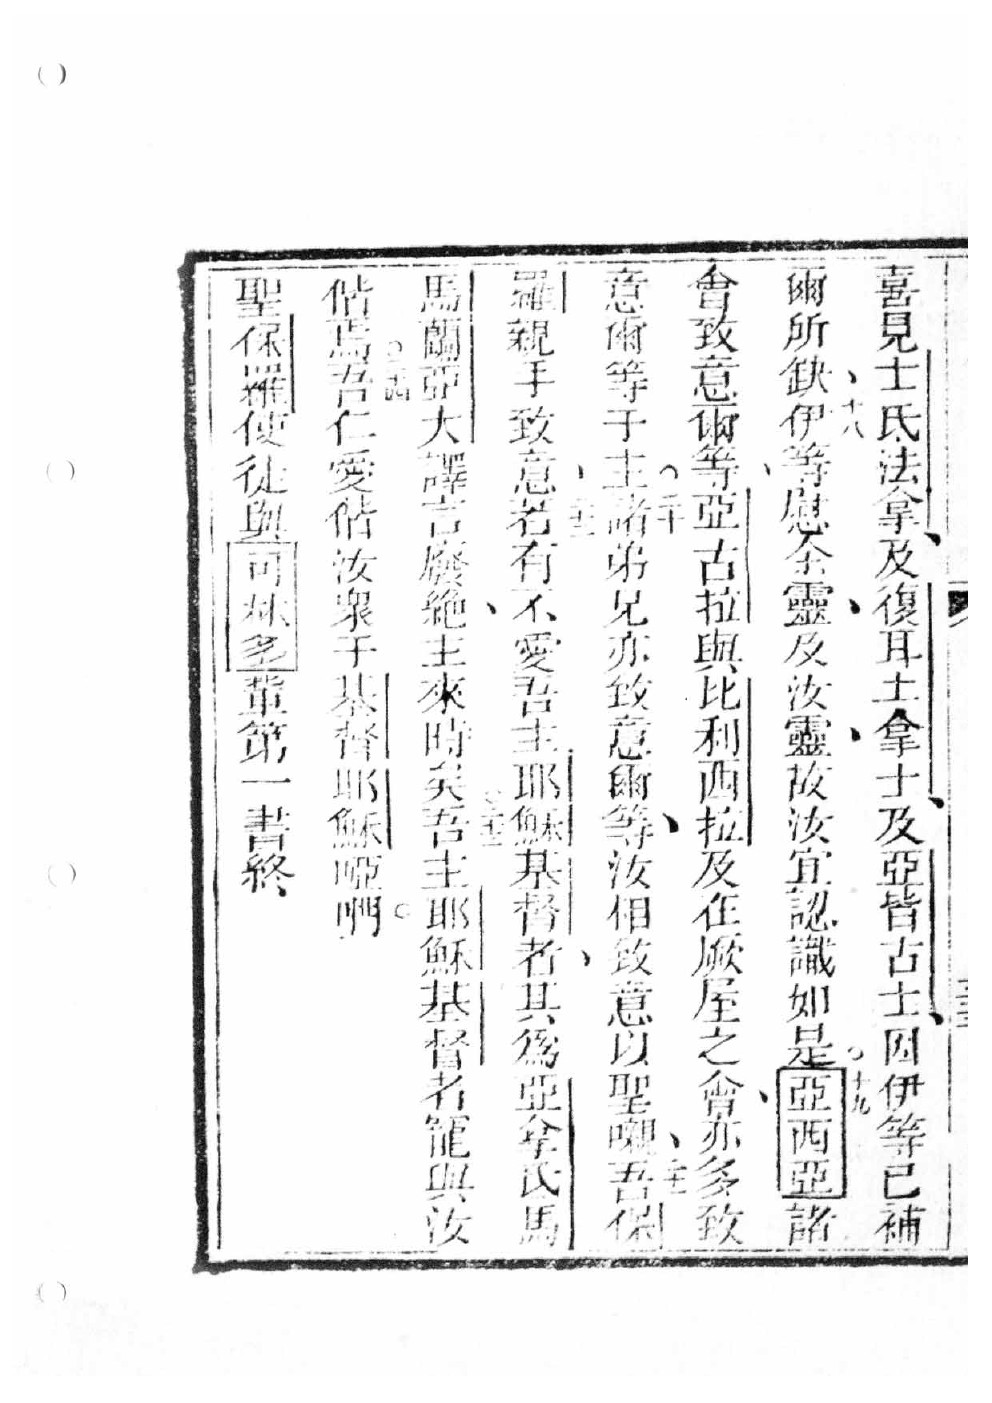 喜見士氏法拿及復耳土拿士及亞皆古士因伊等已補
爾所缺十八伊等慰余靈及汝靈故汝宜認識如是十九亞西亞諸
會致意爾等亞古拉與比利西拉及在厥屋之會亦多致
意爾等于主二十諸弟兄亦致意爾等汝相致意以聖嚫二十一吾保
羅親手致意二十二若有不愛吾主耶穌基督者其為亞拿氏馬
馬蘭亞大譯言廢絶主來時矣二十三吾主耶穌基督者寵與汝
偕焉二十四吾仁愛偕汝衆于基督耶穌啞們
聖保羅使徒與可林多輩第一書終